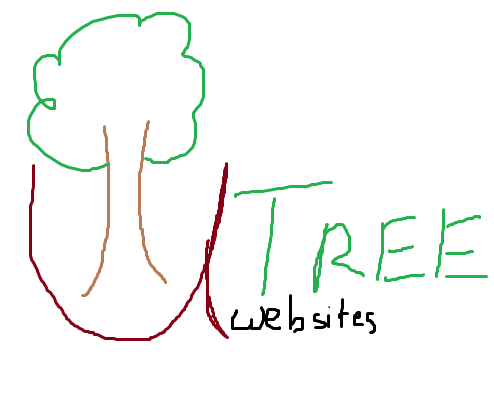 U TREE
websites